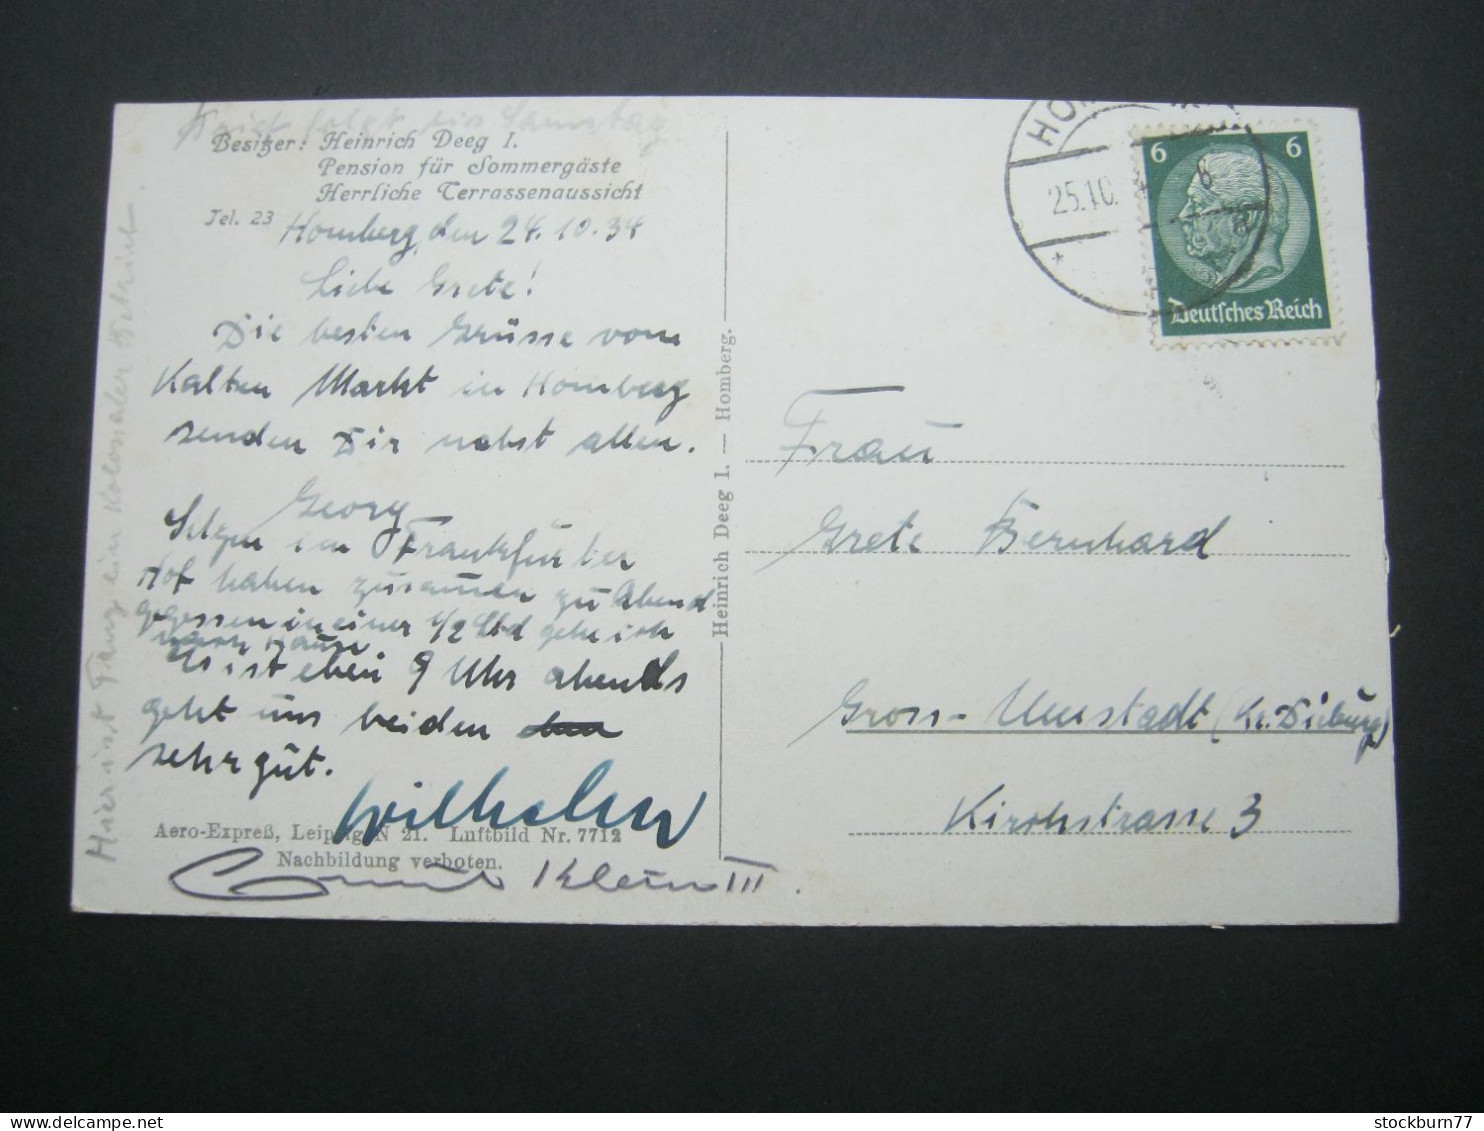 Brief folgt bis Samstag
Besitzer: Heinrich Deeg I.
Pension für Sommergäste
Herrliche Terrassenaussicht
Tel. 23
Homberg, den 24.10.34
Liebe Grete!
Die besten Grüsse vom
Kalten Markt in Homberg
senden Dir nebst allen.
Georg
im Frankfurter
Hof haben zusammen zu Abend
gegessen in einer 1/2 Std gehe ich
nach Hause
Es ist eben 9 Uhr abends
geht uns beiden
sehr gut.
Wilhelm
Aero-Expreß, Leipzig N 21. Luftbild Nr. 7712
Nachbildung verboten.
Klein III.
Hier ist Tanz ein kolonaler Betrieb
Heinrich Deeg I. — Homberg.
HOM
25.10.
6
6 6
Deutsches Reich
Frau
Grete Bernhard
Gross-Umstadt (Kr. Dieburg)
Kirchstrasse 3
stockburn77